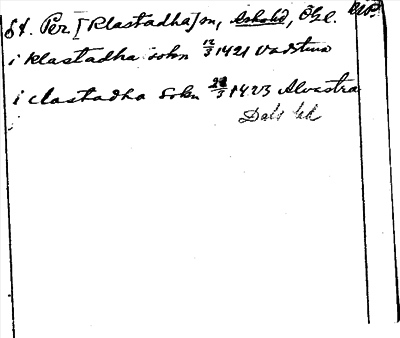 St. Per [Klastadha] sn, Eskelid, Ögl.
i Klastadha sokn 12/3 1421 Vadstena
i clastadha Sokn 28/3 1423 Alvastra
Dals hd